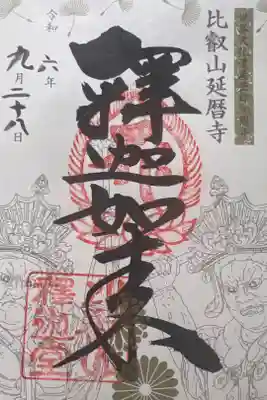 比叡山延暦寺
釋迦如来
令和六年
九月二十八日
釋迦堂